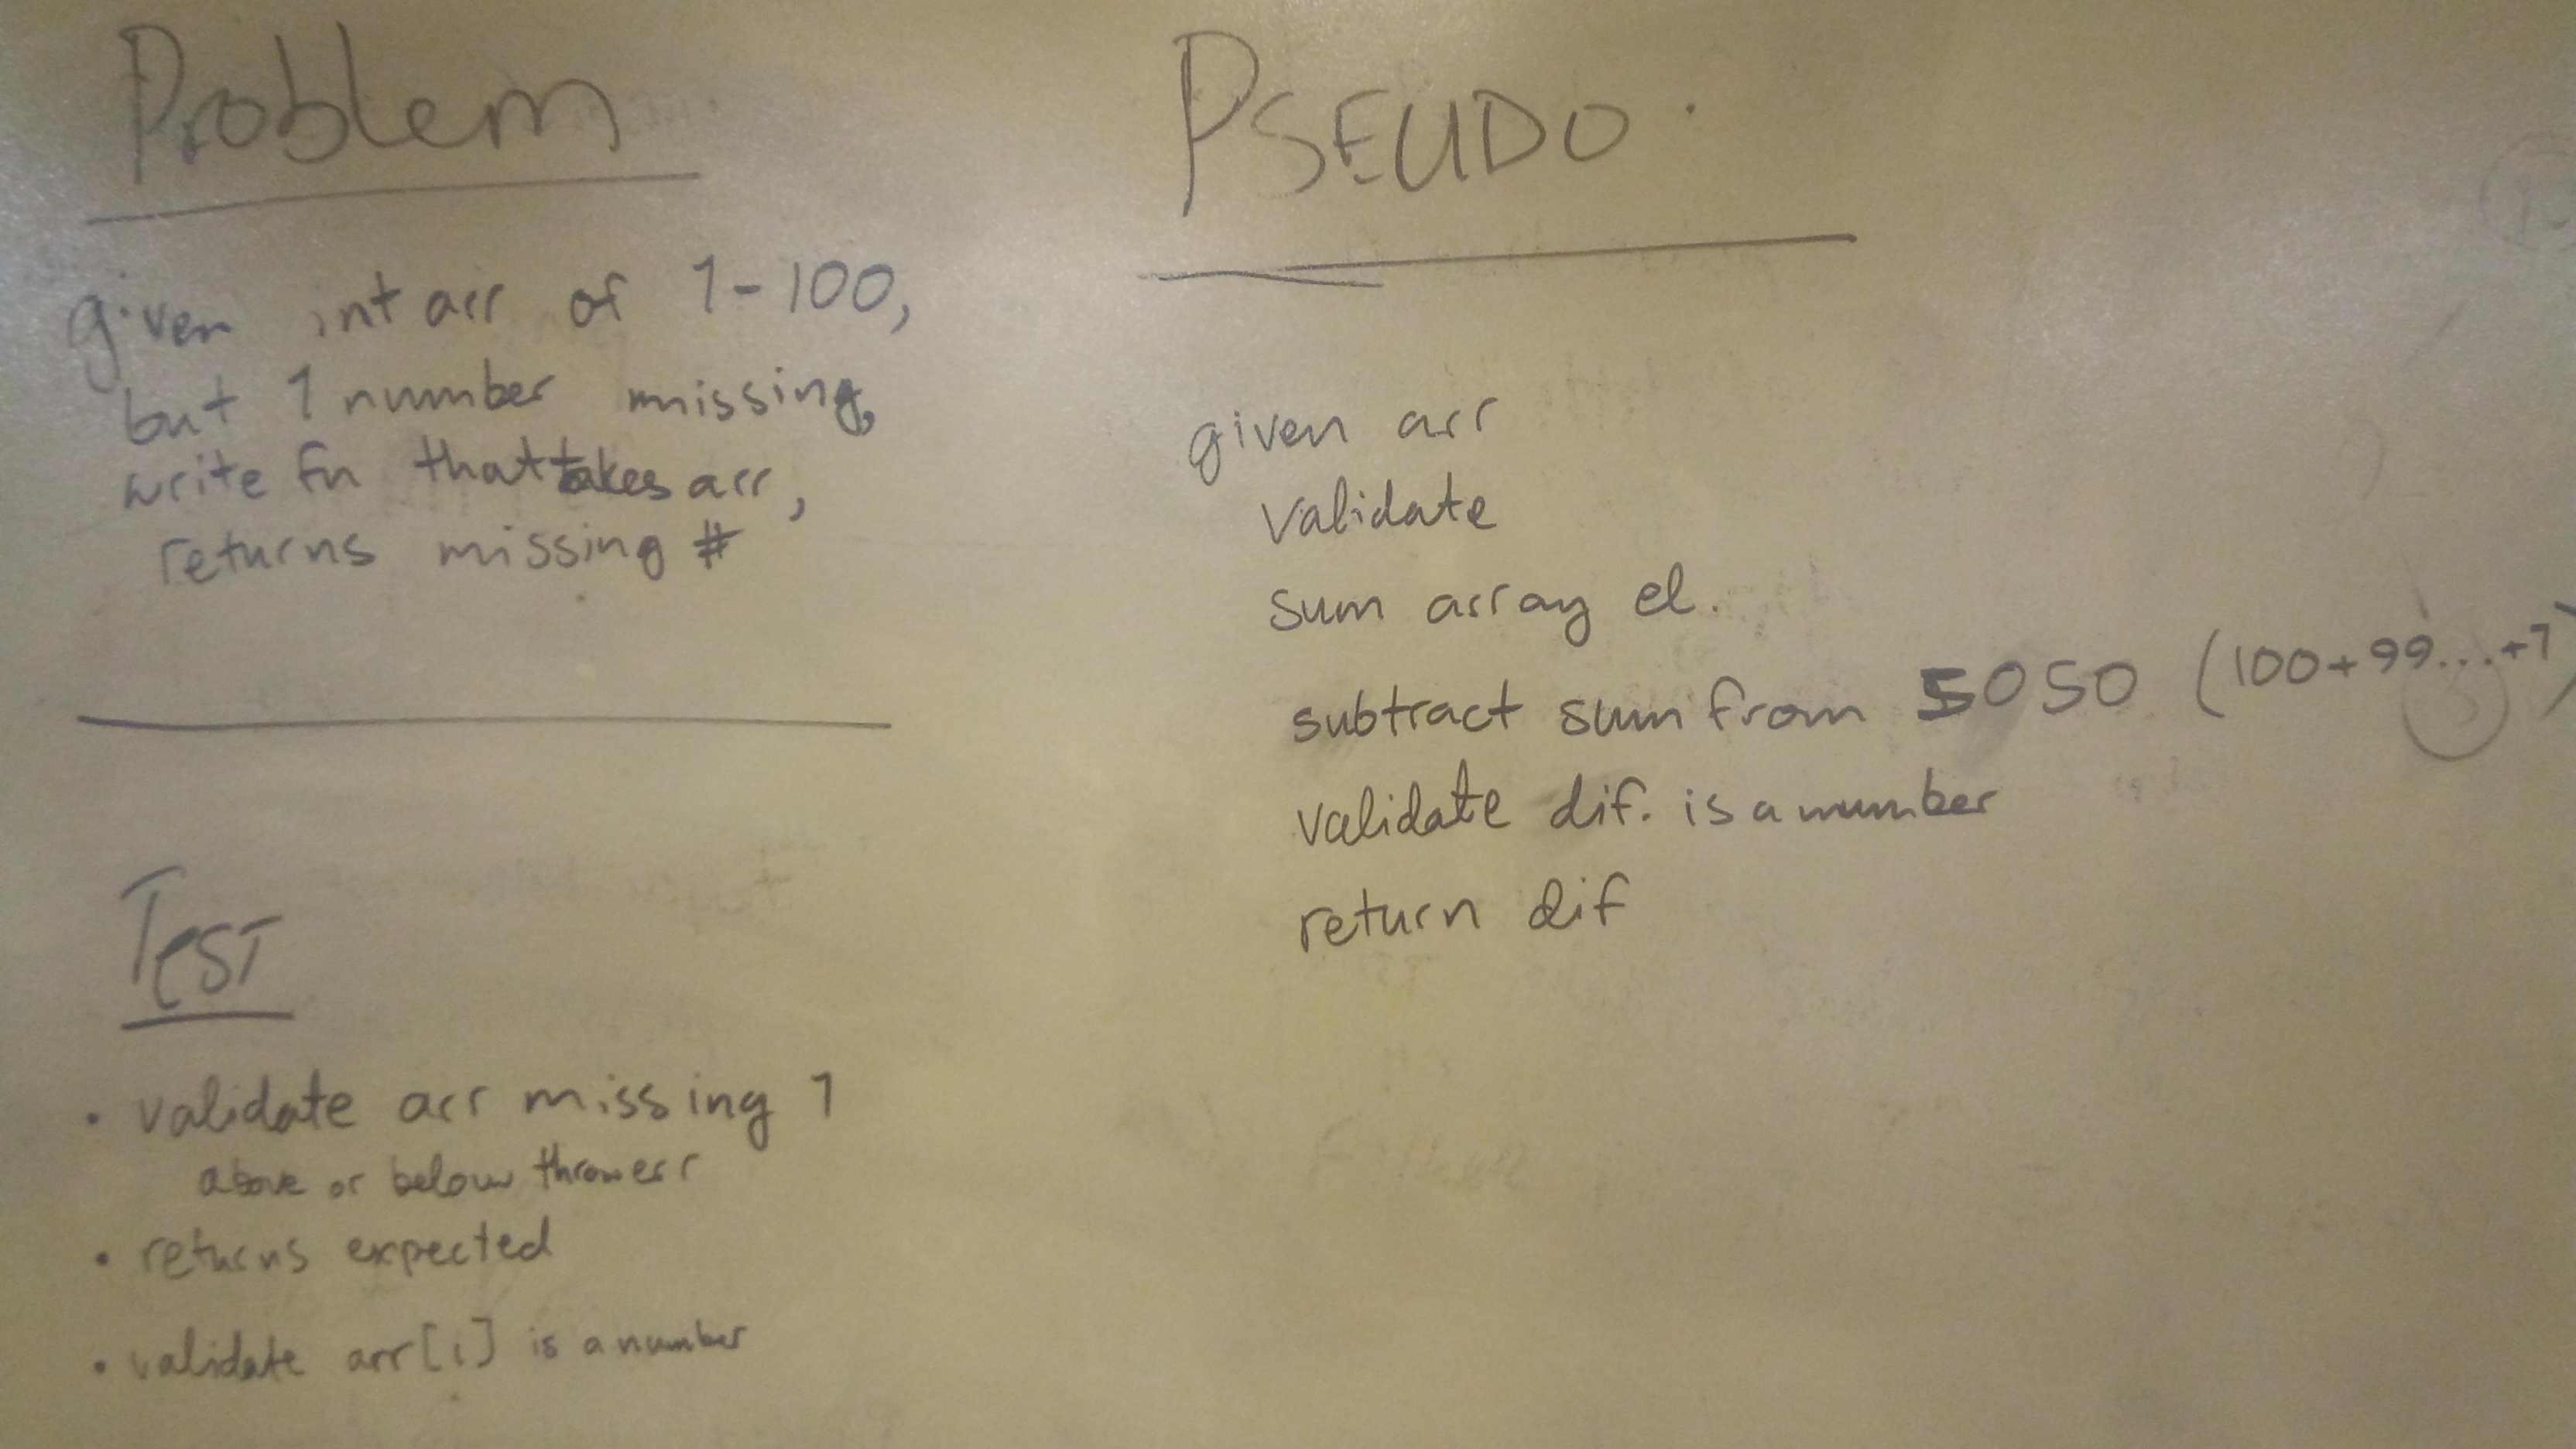 Problem
given int arr of 1-100,
but 1 number missing,
write fn that takes arr,
returns missing #
Test
• validate arr missing 1
above or below throw err
• returns expected
• validate arr[i] is a number
PSEUDO
given arr
validate
sum array el.
subtract sum from 5050 (100+99...+1)
validate dif. is a number
return dif